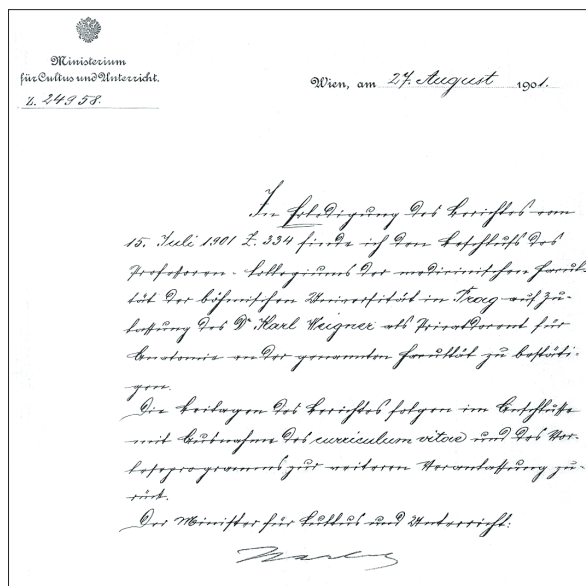 Ministerium
für Cultus und Unterricht.
Z. 24958.
Wien, am 27. August 1901.
In Erledigung des Berichtes vom
15. Juli 1901 Z. 334 finde ich den Beschluß des
Professoren-Kollegiums der medicinischen Facul-
tät der böhmischen Universität in Prag auf Zu-
lassung des Dr Karl Weigner als Privatdocent für
Anatomie an der genannten Facultät zu bestäti-
gen.
Die Beilagen des Berichtes folgen im Anschluße
mit Ausnahme des curriculum vitae und des Vor-
leseprogramms zur weiteren Veranlassung zu-
rück.
Der Minister für Kultus und Unterricht: